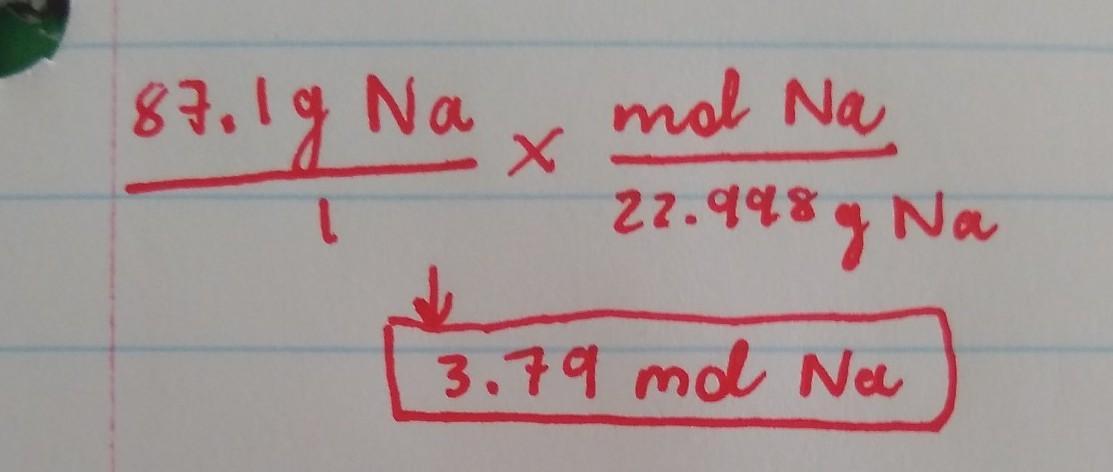 87.1g Na × mol Na
1 22.998 g Na
↓
3.79 mol Na